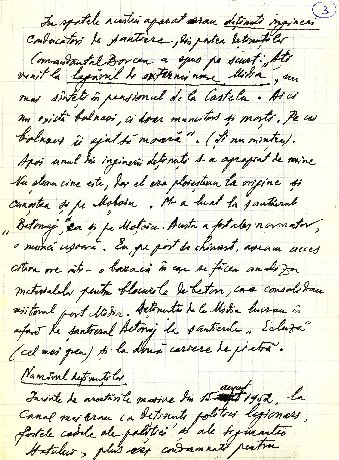 3
În spatele acestui aparat erau deținuți ingineri
conducători de șantiere, din partea deținuților
Comandantul Borcea a spus pe scurt: Ați
venit la lagărul de exterminare Midia, nu
mai sînteți în pensionul de la Castelu. Aici
nu există bolnavi, ci doar muncitori și morți. Pe cei
bolnavi îi ajut să moară". (Și nu mințea).
Apoi unul din inginerii deținuți s-a apropiat de mine
Nu știam cine este, dar el era ploieștean la origine și
cunoștea și pe M. M-a luat la șantierul
„Betonaj", ca și pe Acesta a fost ales normator,
o muncă ușoară. Eu pe post de chimist, aveam acces
câteva ore într-o baracă în care se făcea analiza
materialului pentru blocurile de beton, care consolidau
viitorul port Midia. Deținuții de la Midia lucrau în
afară de șantierul Betonaj la șantierele „Ecluza"
(cel mai greu) și la două cariere de piatră.
Numărul deținuților
Înainte de arestările masive din 15 august 1952, la
Canal mai erau ca deținuți politici legionari,
fostele cadre ale poliției și ale siguranței
Statului, plus cei condamnați pentru